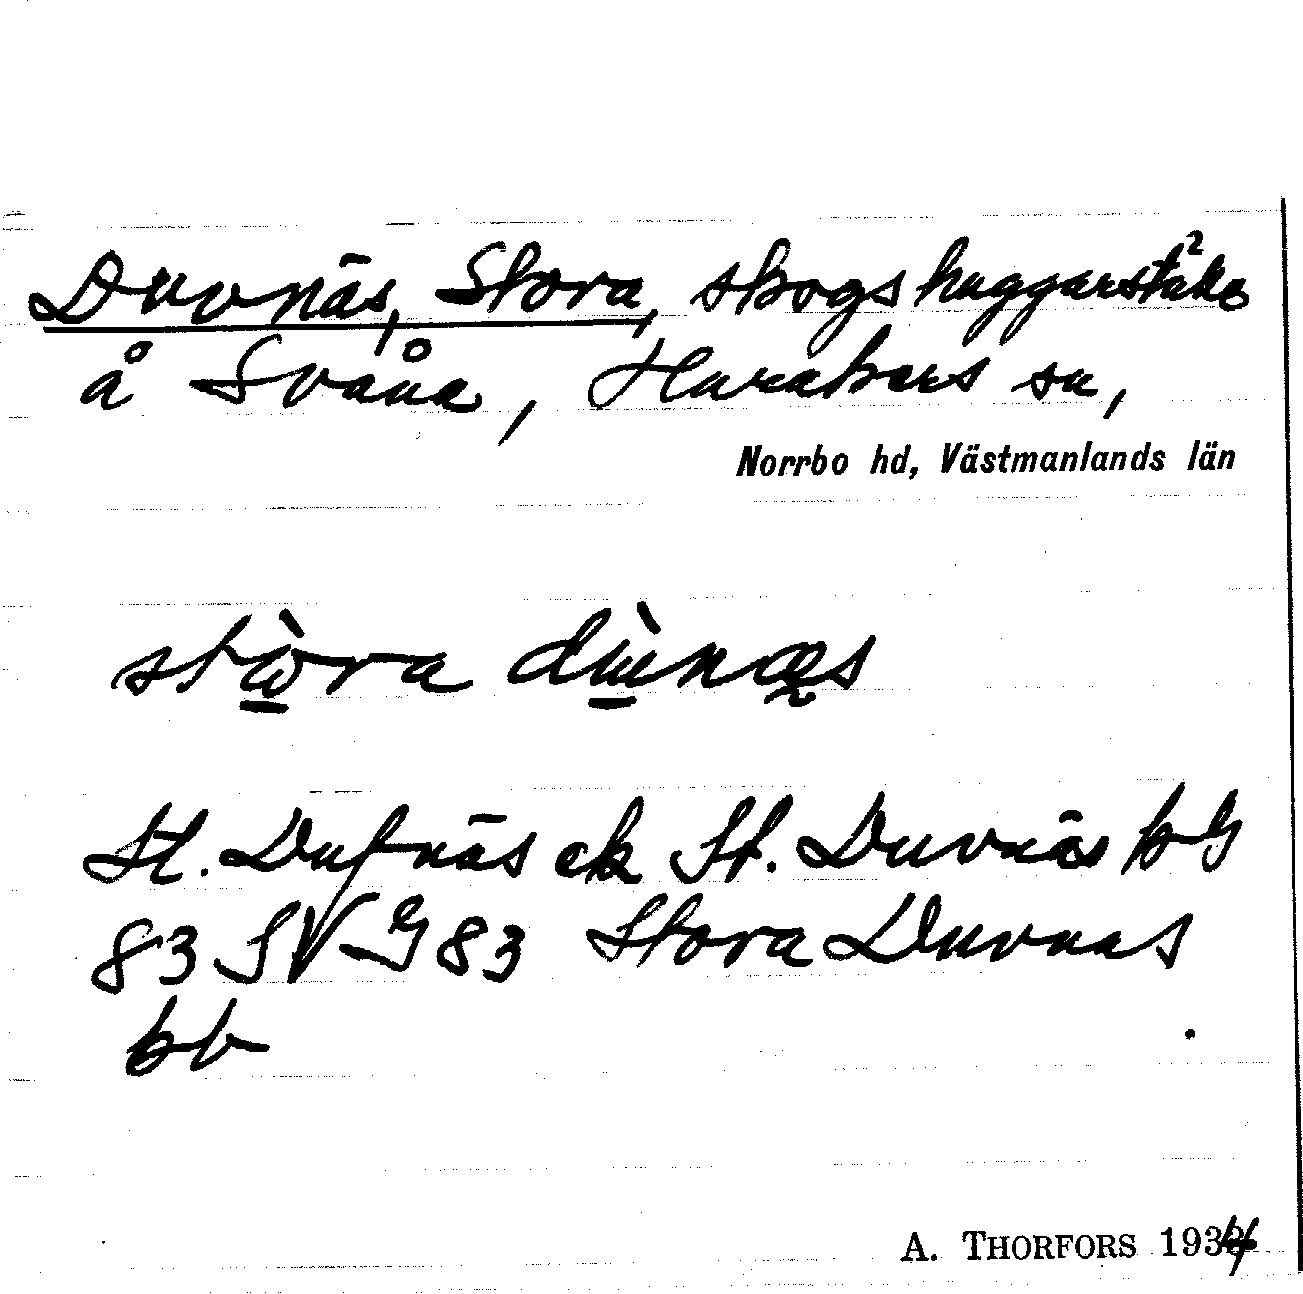 Duvnäs, Stora, skogshuggarställe
å Svånå, Harakers sn,
Norrbo hd, Västmanlands län
stòra dùnæs
St. Dufnäs ek St. Duvnäs
83 Stora Duvnäs
A. THORFORS 1934